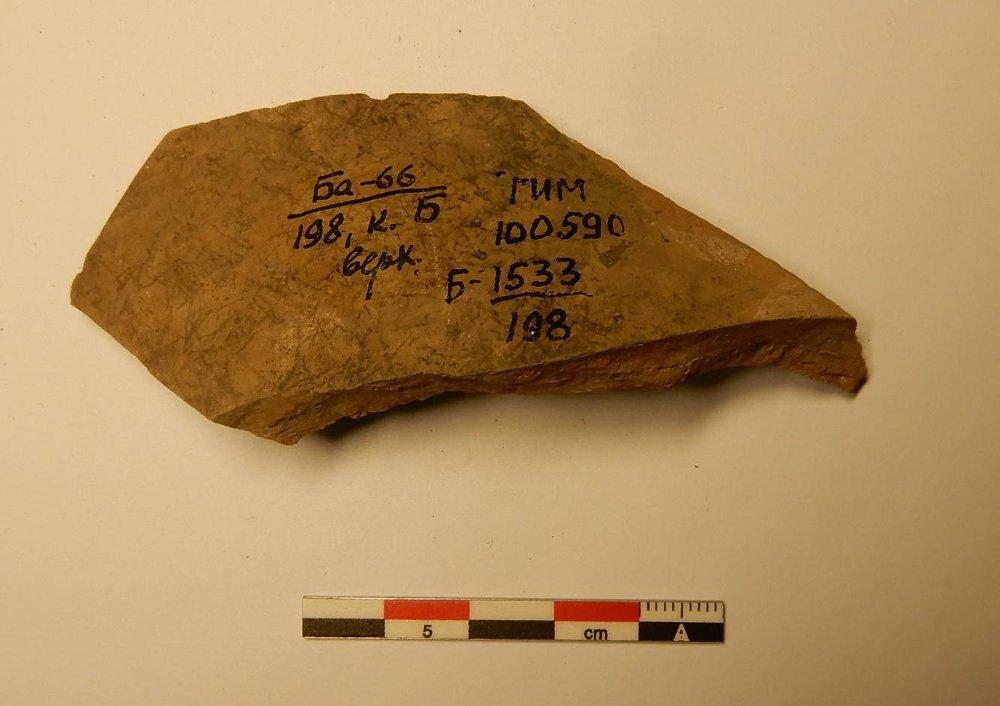 Ба-66
198, к. Б
верх.
ГИМ
100590
Б-1533
198
5 cm